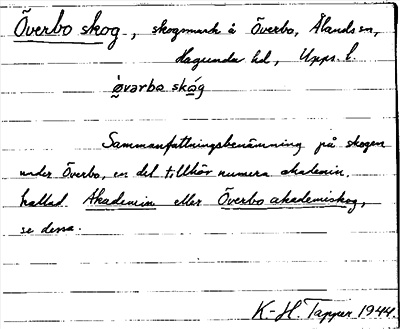 Överbo skog, skogsmark å Överbo, Ålands sn,
Hagunda hd, Upps. l.
òvarbo skóg
Sammanfattningsbenämning på skogen
under Överbo, en del tillhör numera akademin,
kallad Akademin eller Överbo akademiskog,
se dessa.
K-H. Tapper 1944.